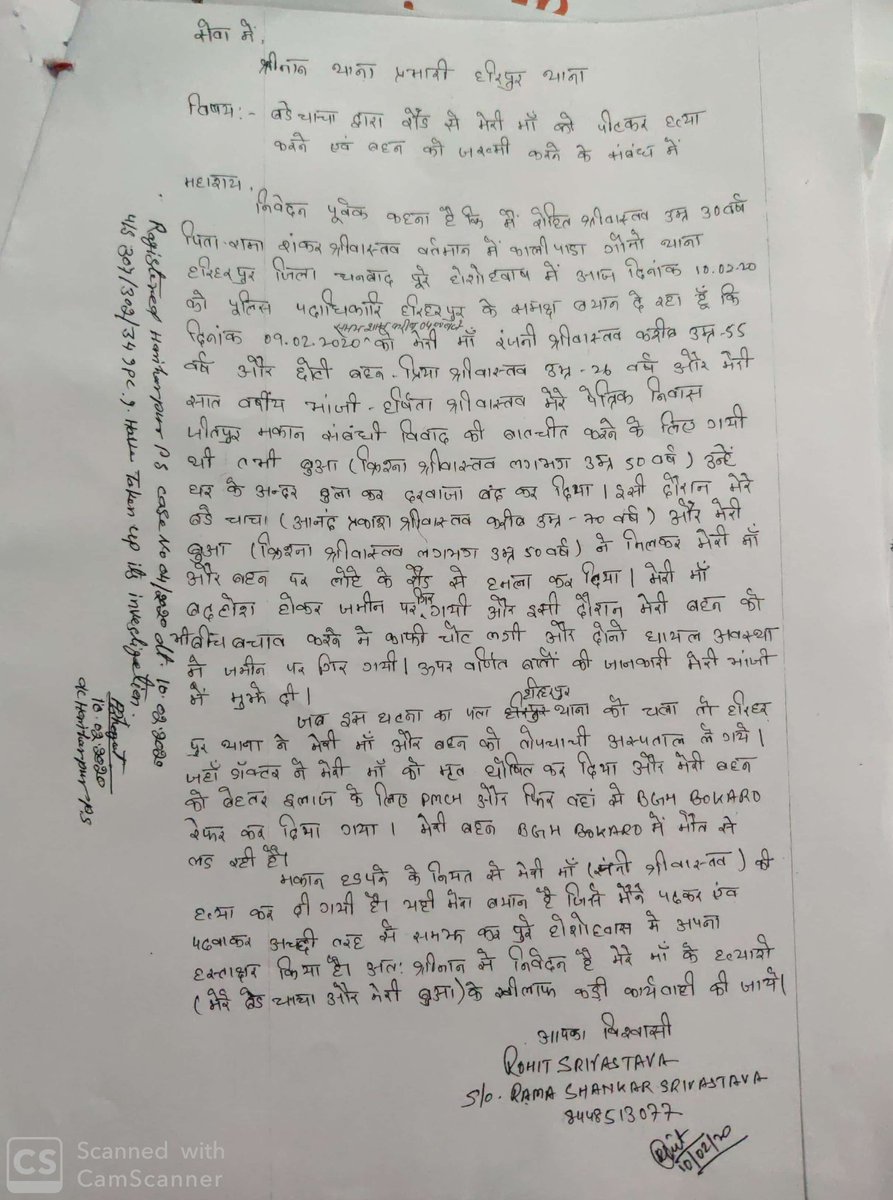 सेवा में,
श्रीमान थाना प्रभारी हरिहरपुर थाना
विषय:- बडे चाचा द्वारा रॉड से मेरी माँ को पीटकर हत्या
करने एवं बहन को जख्मी करने के संबंध में
महाशय,
निवेदन पूर्वक कहना है कि मैं रोहित श्रीवास्तव उम्र 30 वर्ष
पिता रामा शंकर श्रीवास्तव वर्तमान में कालीपाडा गोमो थाना
हरिहरपुर जिला धनबाद पूरे होशोहवाष में आज दिनांक 10.02.20
को पुलिस पदाधिकारि हरिहरपुर के समक्ष बयान दे रहा हूँ कि
दिनांक 09.02.2020 को मेरी माँ रंजनी श्रीवास्तव करीब उम्र-55
वर्ष और छोटी बहन - प्रिया श्रीवास्तव उम्र-26 वर्ष और मेरी
सात वर्षीय भांजी - हर्षिता श्रीवास्तव मेरे पैत्रिक निवास
जीतपुर मकान संबंधी विवाद की बातचीत करने के लिए गयी
थी तभी बुआ (क्रिशना श्रीवास्तव लगभग उम्र 50 वर्ष) उन्हें
घर के अन्दर बुला कर दरवाजा बंद कर दिया। इसी दौरान मेरे
बडे चाचा (आनंद प्रकाश श्रीवास्तव करीब उम्र-70 वर्ष) और मेरी
बुआ (क्रिशना श्रीवास्तव लगभग उम्र 50 वर्ष) ने मिलकर मेरी माँ
और बहन पर लोहे के रॉड से हमला कर दिया। मेरी माँ
बदहोश होकर जमीन पर गिर गयी और इसी दौरान मेरी बहन को
भी बीच बचाव करने में काफी चोट लगी और दोनो घायल अवस्था
मे जमीन पर गिर गयी। ऊपर वर्णित बातों की जानकारी मेरी भांजी
में मुझे दी।
जब इस घटना का पता हरिहरपुर थाना को चला तो हरिहर
पुर थाना ने मेरी माँ और बहन को तोपचाची अस्पताल ले गये।
जहाँ डॉक्टर ने मेरी माँ को मृत घोषित कर दिया और मेरी बहन
को बेहतर इलाज के लिए PMCH और फिर वहां से BGH BOKARO
रेफर कर दिया गया। मेरी बहन BGH BOKARO में मौत से
लड रही है।
मकान हडपने के नियत से मेरी माँ (श्रीवास्तव) की
हत्या कर दी गयी है। यही मेरा बयान है जिसे मैंने पढकर एंव
पढवाकर अच्छी तरह से समझ कर पुरे होशोहवास मे अपना
हस्ताक्षर किया है। अतः श्रीमान से निवेदन है मेरे माँ के हत्यारो
(मेरे बडे चाचा और मेरी बुआ) के खीलाफ कडी कार्यवाही की जाये।
आपका विश्वासी
ROHIT SRIVASTAVA
S/o. RAMA SHANKAR SRIVASTAVA
8448513077
10/02/20
Registered Hariharpur PS case No 04/2020 dt. 10.02.2020
u/s 307/302/34 IPC. Have Taken up its investigation.
10.02.2020
OC Hariharpur PS
CS Scanned with
CamScanner